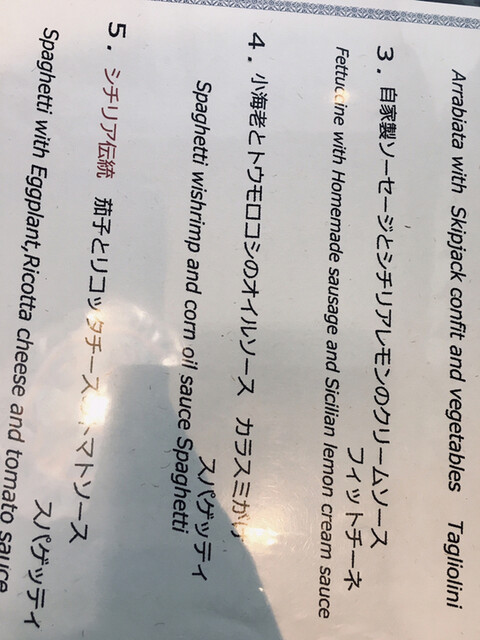 Arrabiata with Skipjack confit and vegetables Tagliolini
3．自家製ソーセージとシチリアレモンのクリームソース
フィットチーネ
Fettuccine with Homemade sausage and Sicilian lemon cream sauce
4．小海老とトウモロコシのオイルソース カラスミがけ
スパゲッティ
Spaghetti wishrimp and corn oil sauce Spaghetti
5．シチリア伝統 茄子とリコッタチーズ トマトソース
スパゲッティ
Spaghetti with Eggplant,Ricotta cheese and tomato sauce